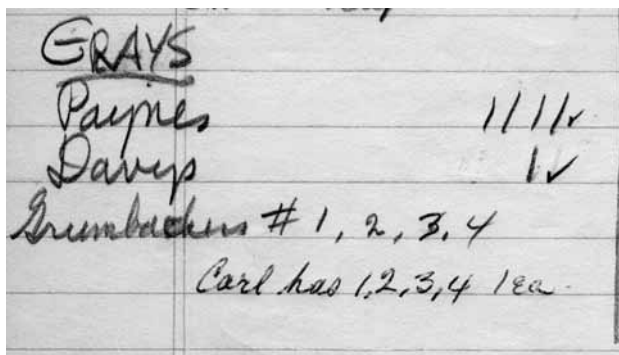 GRAYS
Paynes 1111✓
Davys 1✓
Grumbachers # 1, 2, 3, 4
Carl has 1,2,3,4 1ea.